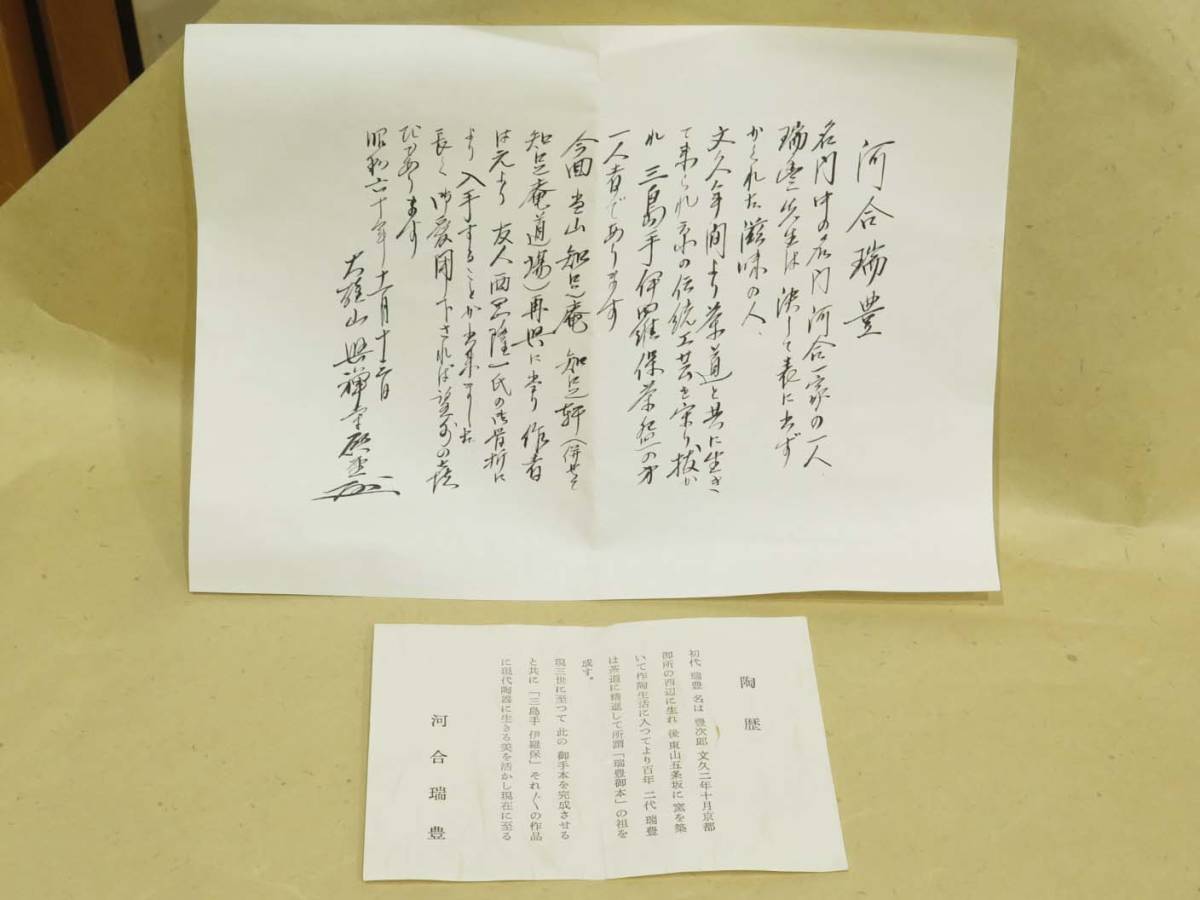 河合瑞豊
名門中の名門 河合一家の一人
瑞豊先生は決して表に出ず
かくれた滋味の人、
文久年間より茶道と共に生き
て来られ京の伝統工芸を守り抜か
れ 三島手 伊羅保茶盌の第
一人者であります
今回 当山 知足庵 知足軒(併せて
知足庵道場)再興に当り 作者
は元より 友人 西 隆一氏の御骨折に
より 入手することが出来ました
長く御愛用下されば望外の喜
びであります
昭和六十年十一月十二日
大雄山 興禅寺
陶歴
初代 瑞豊 名は 豊次郎 文久二年十月京都
御所の西辺に生れ 後 東山五条坂に 窯を築
いて作陶生活に入つてより百年 二代 瑞豊
は茶道に精進して所謂「瑞豊御本」の祖を
成す。
現三世に至つて 此の 御手本を完成させる
と共に「三島手 伊羅保」それ〲の作品
に現代陶器に生きる美を活かし現在に至る
河合瑞豊